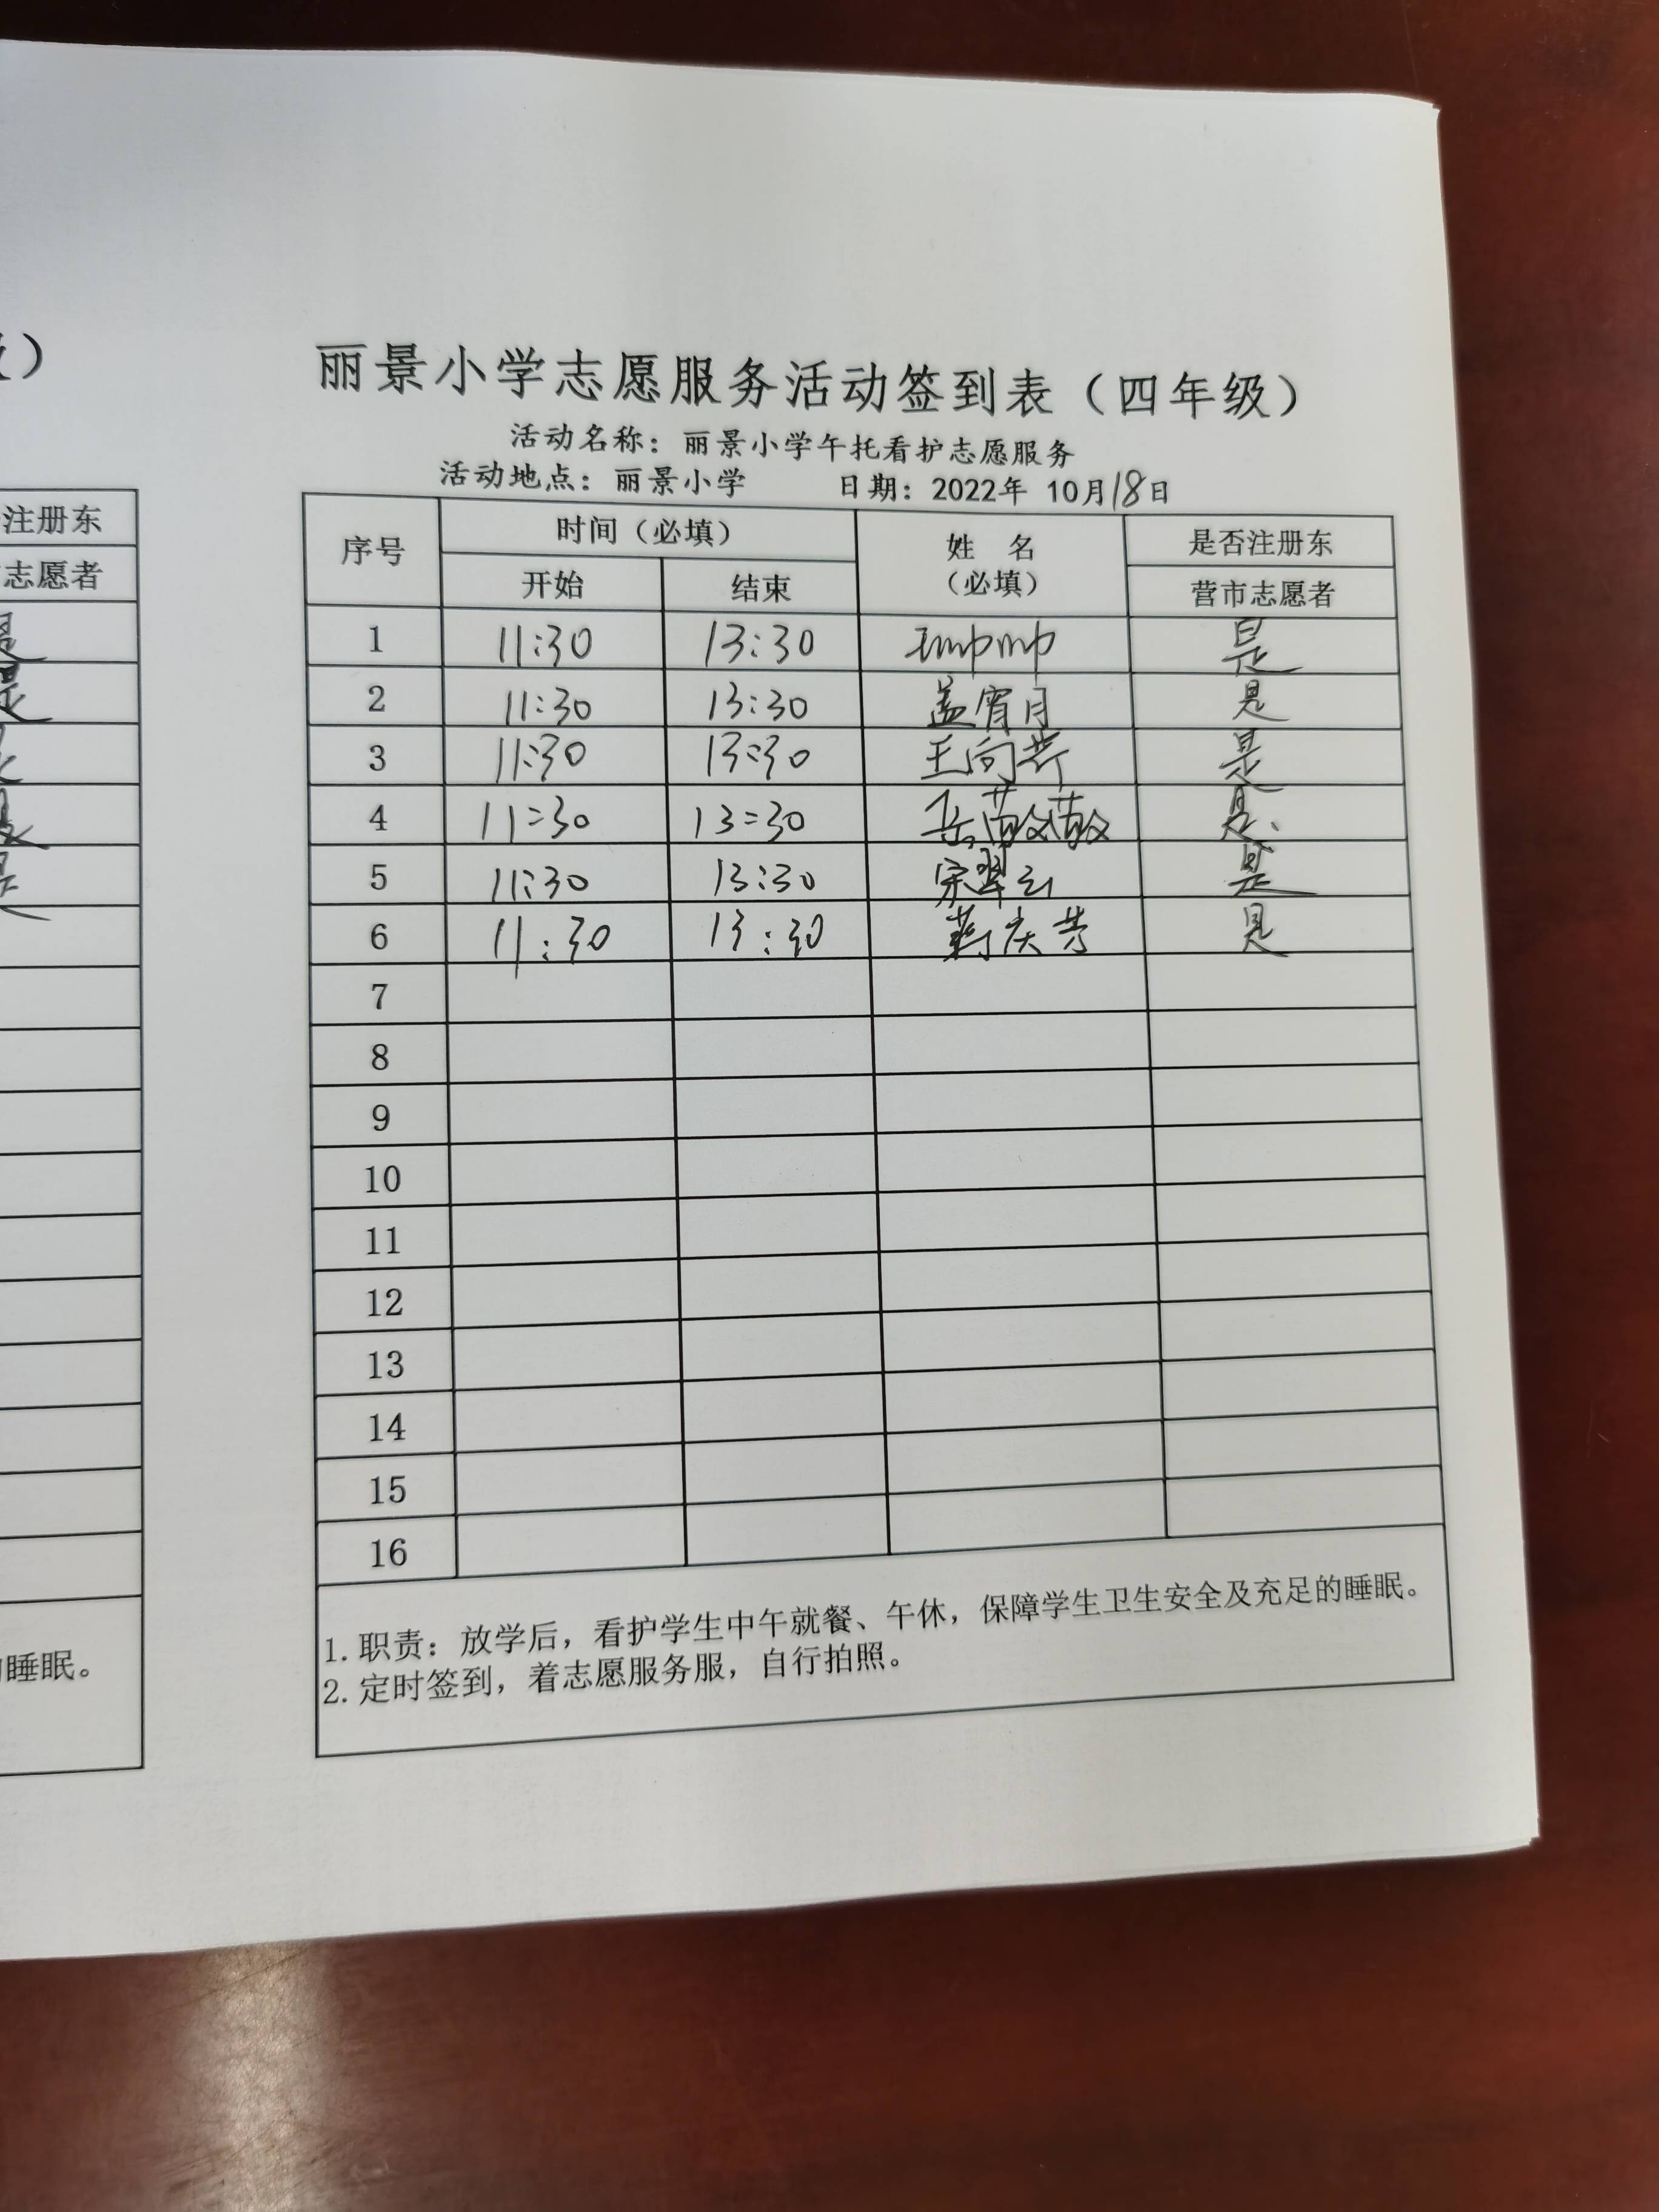 级）
丽景小学志愿服务活动签到表（四年级）
活动名称：丽景小学午托看护志愿服务
活动地点：丽景小学 日期：2022年 10月18日
注册东
志愿者
是
是
是
是
序号 时间（必填） 姓 名（必填） 是否注册东
开始 结束 营市志愿者
1 11:30 13:30 是
2 11:30 13:30 盖宵月 是
3 11:30 13:30 王向 是
4 11:30 13:30 岳 是
5 11:30 13:30 宋翠云 是
6 11:30 13:30 蒋庆芳 是
7
8
9
10
11
12
13
14
15
16
1.职责：放学后，看护学生中午就餐、午休，保障学生卫生安全及充足的睡眠。
2.定时签到，着志愿服务服，自行拍照。
睡眠。